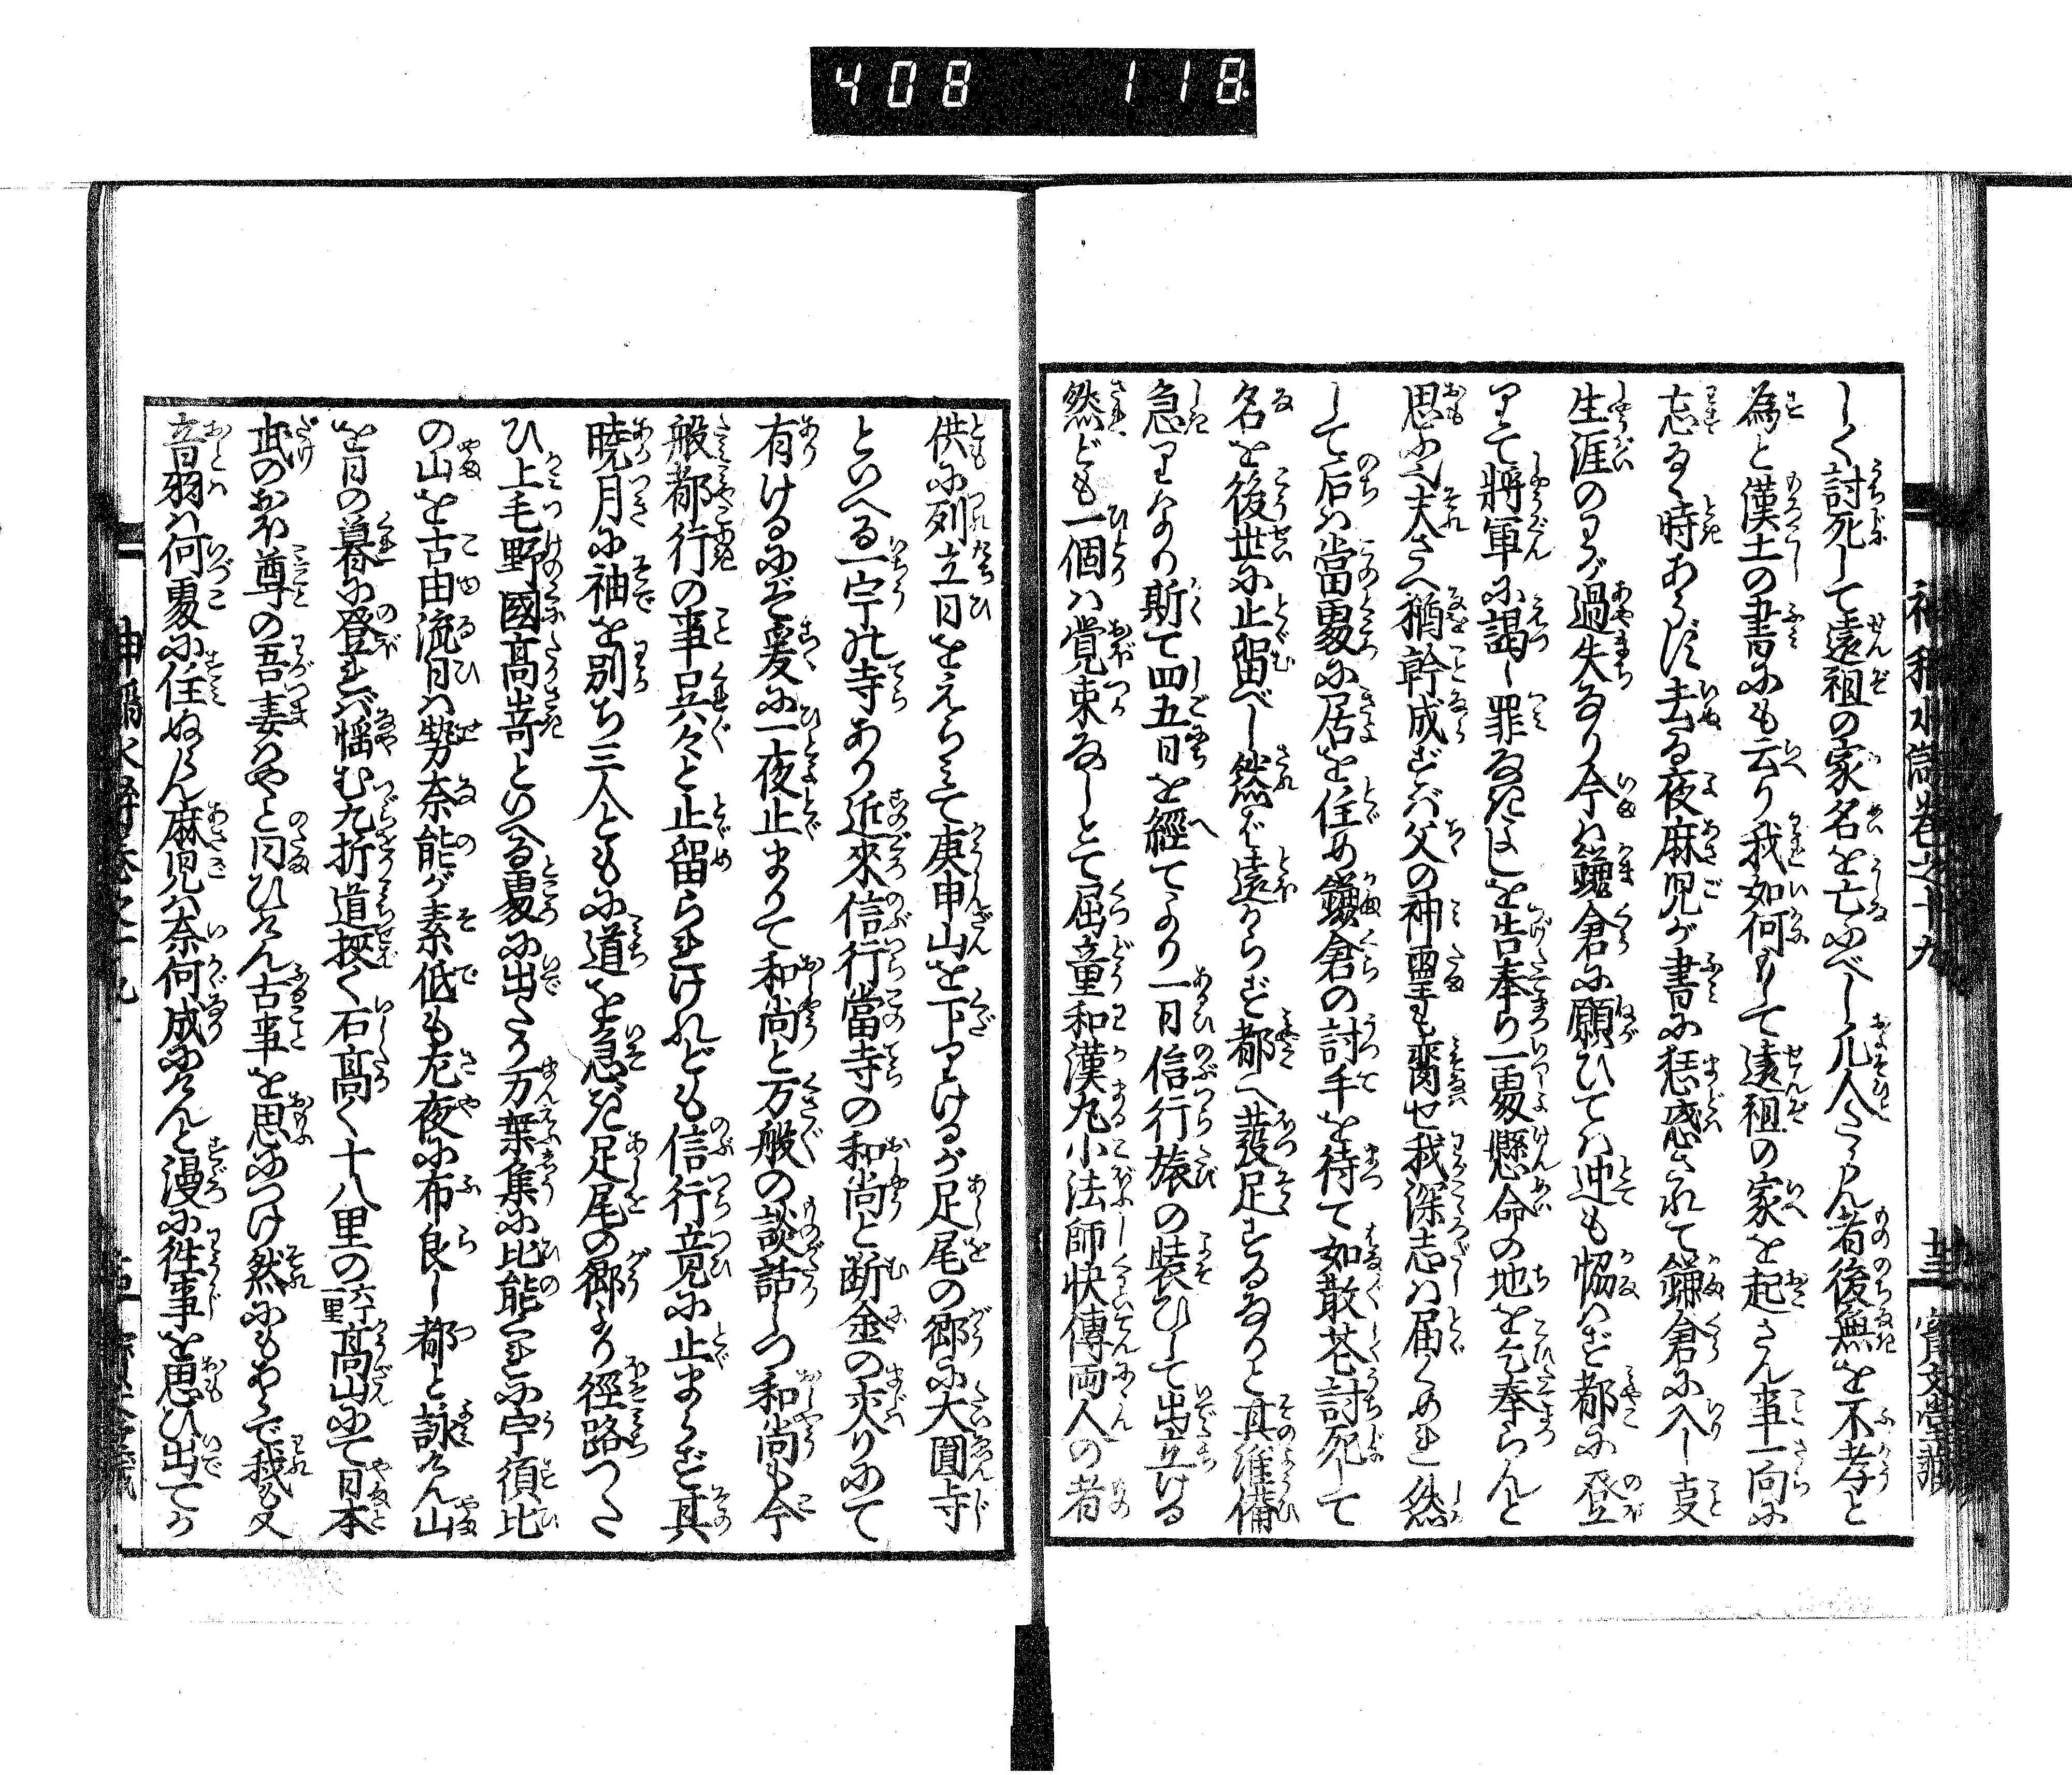 408 118
しく討死して遠祖の家名を亡ふべし凡人たらん者後無を不孝と
為と漢土の書にも云り我如何もして遠祖の家を起さん事一向に
忘るゝ時あらず去る夜麻児が書に惑されて鎌倉に入し支
生涯のわが過失なり今は鎌倉に願ひては迚も恊はず都に登
りて将軍に謁し罪なきよしを告奉り一处懸命の地を乞奉らんと
思ふ也夫さへ猶幹成ずば父の神霊も齎せ我深志は届くめれ然
して后は當处に居を住め鎌倉の討手を待て如散花討死して
名を後世に止留べし然ば遠からず都へ發足するなりと其准備
急りなり斯て四五日を經てより一日信行旅の装ひして出立ける
然ども一個は覚束なしとて屈童和漢丸小法師快傳両人の者
供に列立日をえらみて庚申山を下りけるが足尾の郷に大圓寺
といへる一宇の寺あり近來信行當寺の和尚と断金の交りにて
有けるにぞ爰に一夜止まりて和尚と万般の談話しつ和尚も今
般都行の事呉々と止留られけれども信行竟に止まらず其
暁月に袖を別ち三人ともに道を急ぎ足尾の郷より径路つた
ひ上毛野國高嵜といへる处に出たり万葉集に比能具礼に宇須比
の山を古由流日は勢奈能が素低も左夜に布良し都と詠けん山
を日の暮に登れば悩む九折道挾く石高く十八里の六丁一里高山にて日本
武のみこ尊の吾妻はやと曰ひけん古事を思ひつけ然にもあらで我も又
音羽は何处に住ぬらん麻児は奈何成にけんと漫に往事を思ひ出てか